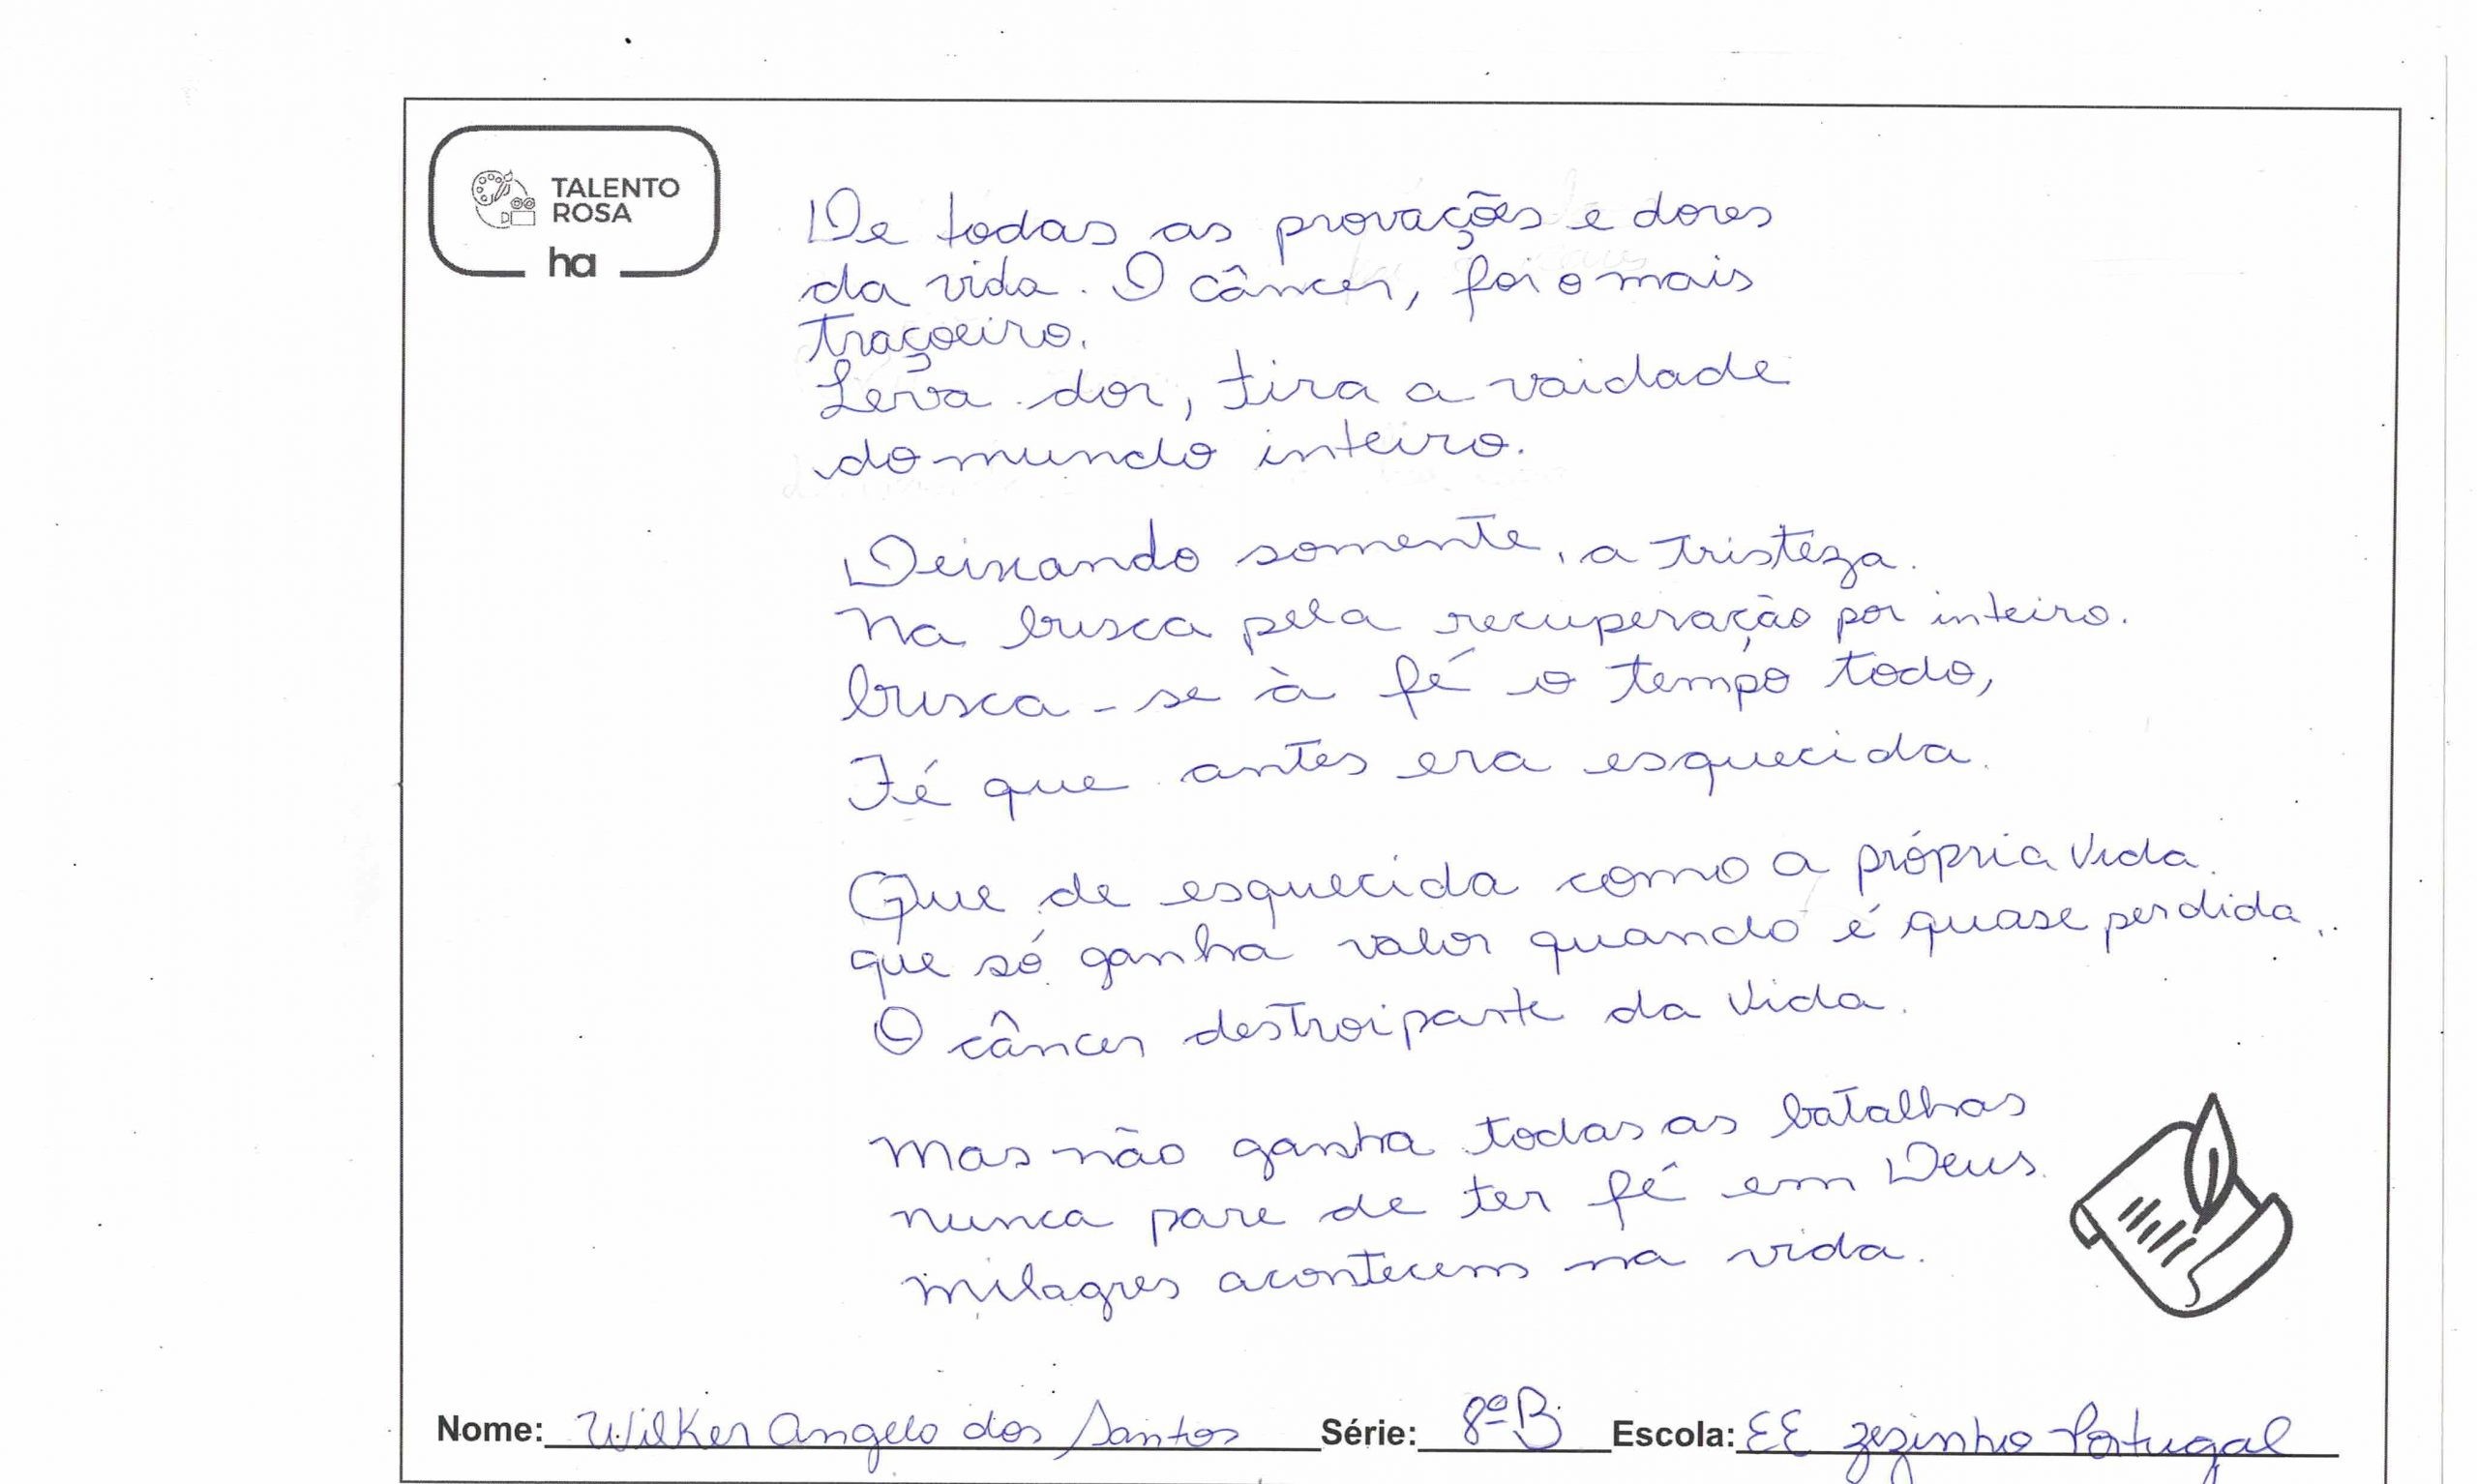 TALENTO
ROSA
ha
De todas as provações e dores
da vida. O câncer, foi o mais
traçoeiro.
Leva dor, tira a vaidade
do mundo inteiro.
Deixando somente, a tristeza.
Na busca pela recuperação por inteiro.
busca-se à fé o tempo todo,
Fé que antes era esquecida.
Que de esquecida como a própria vida.
que só ganha valor quando é quase perdida.
O câncer destroi parte da vida.
Mas não ganha todas as batalhas
nunca pare de ter fé em Deus.
milagres acontecem na vida.
Nome: Wilker Angelo dos Santos Série: 8ºB Escola: EE Zezinho Portugal